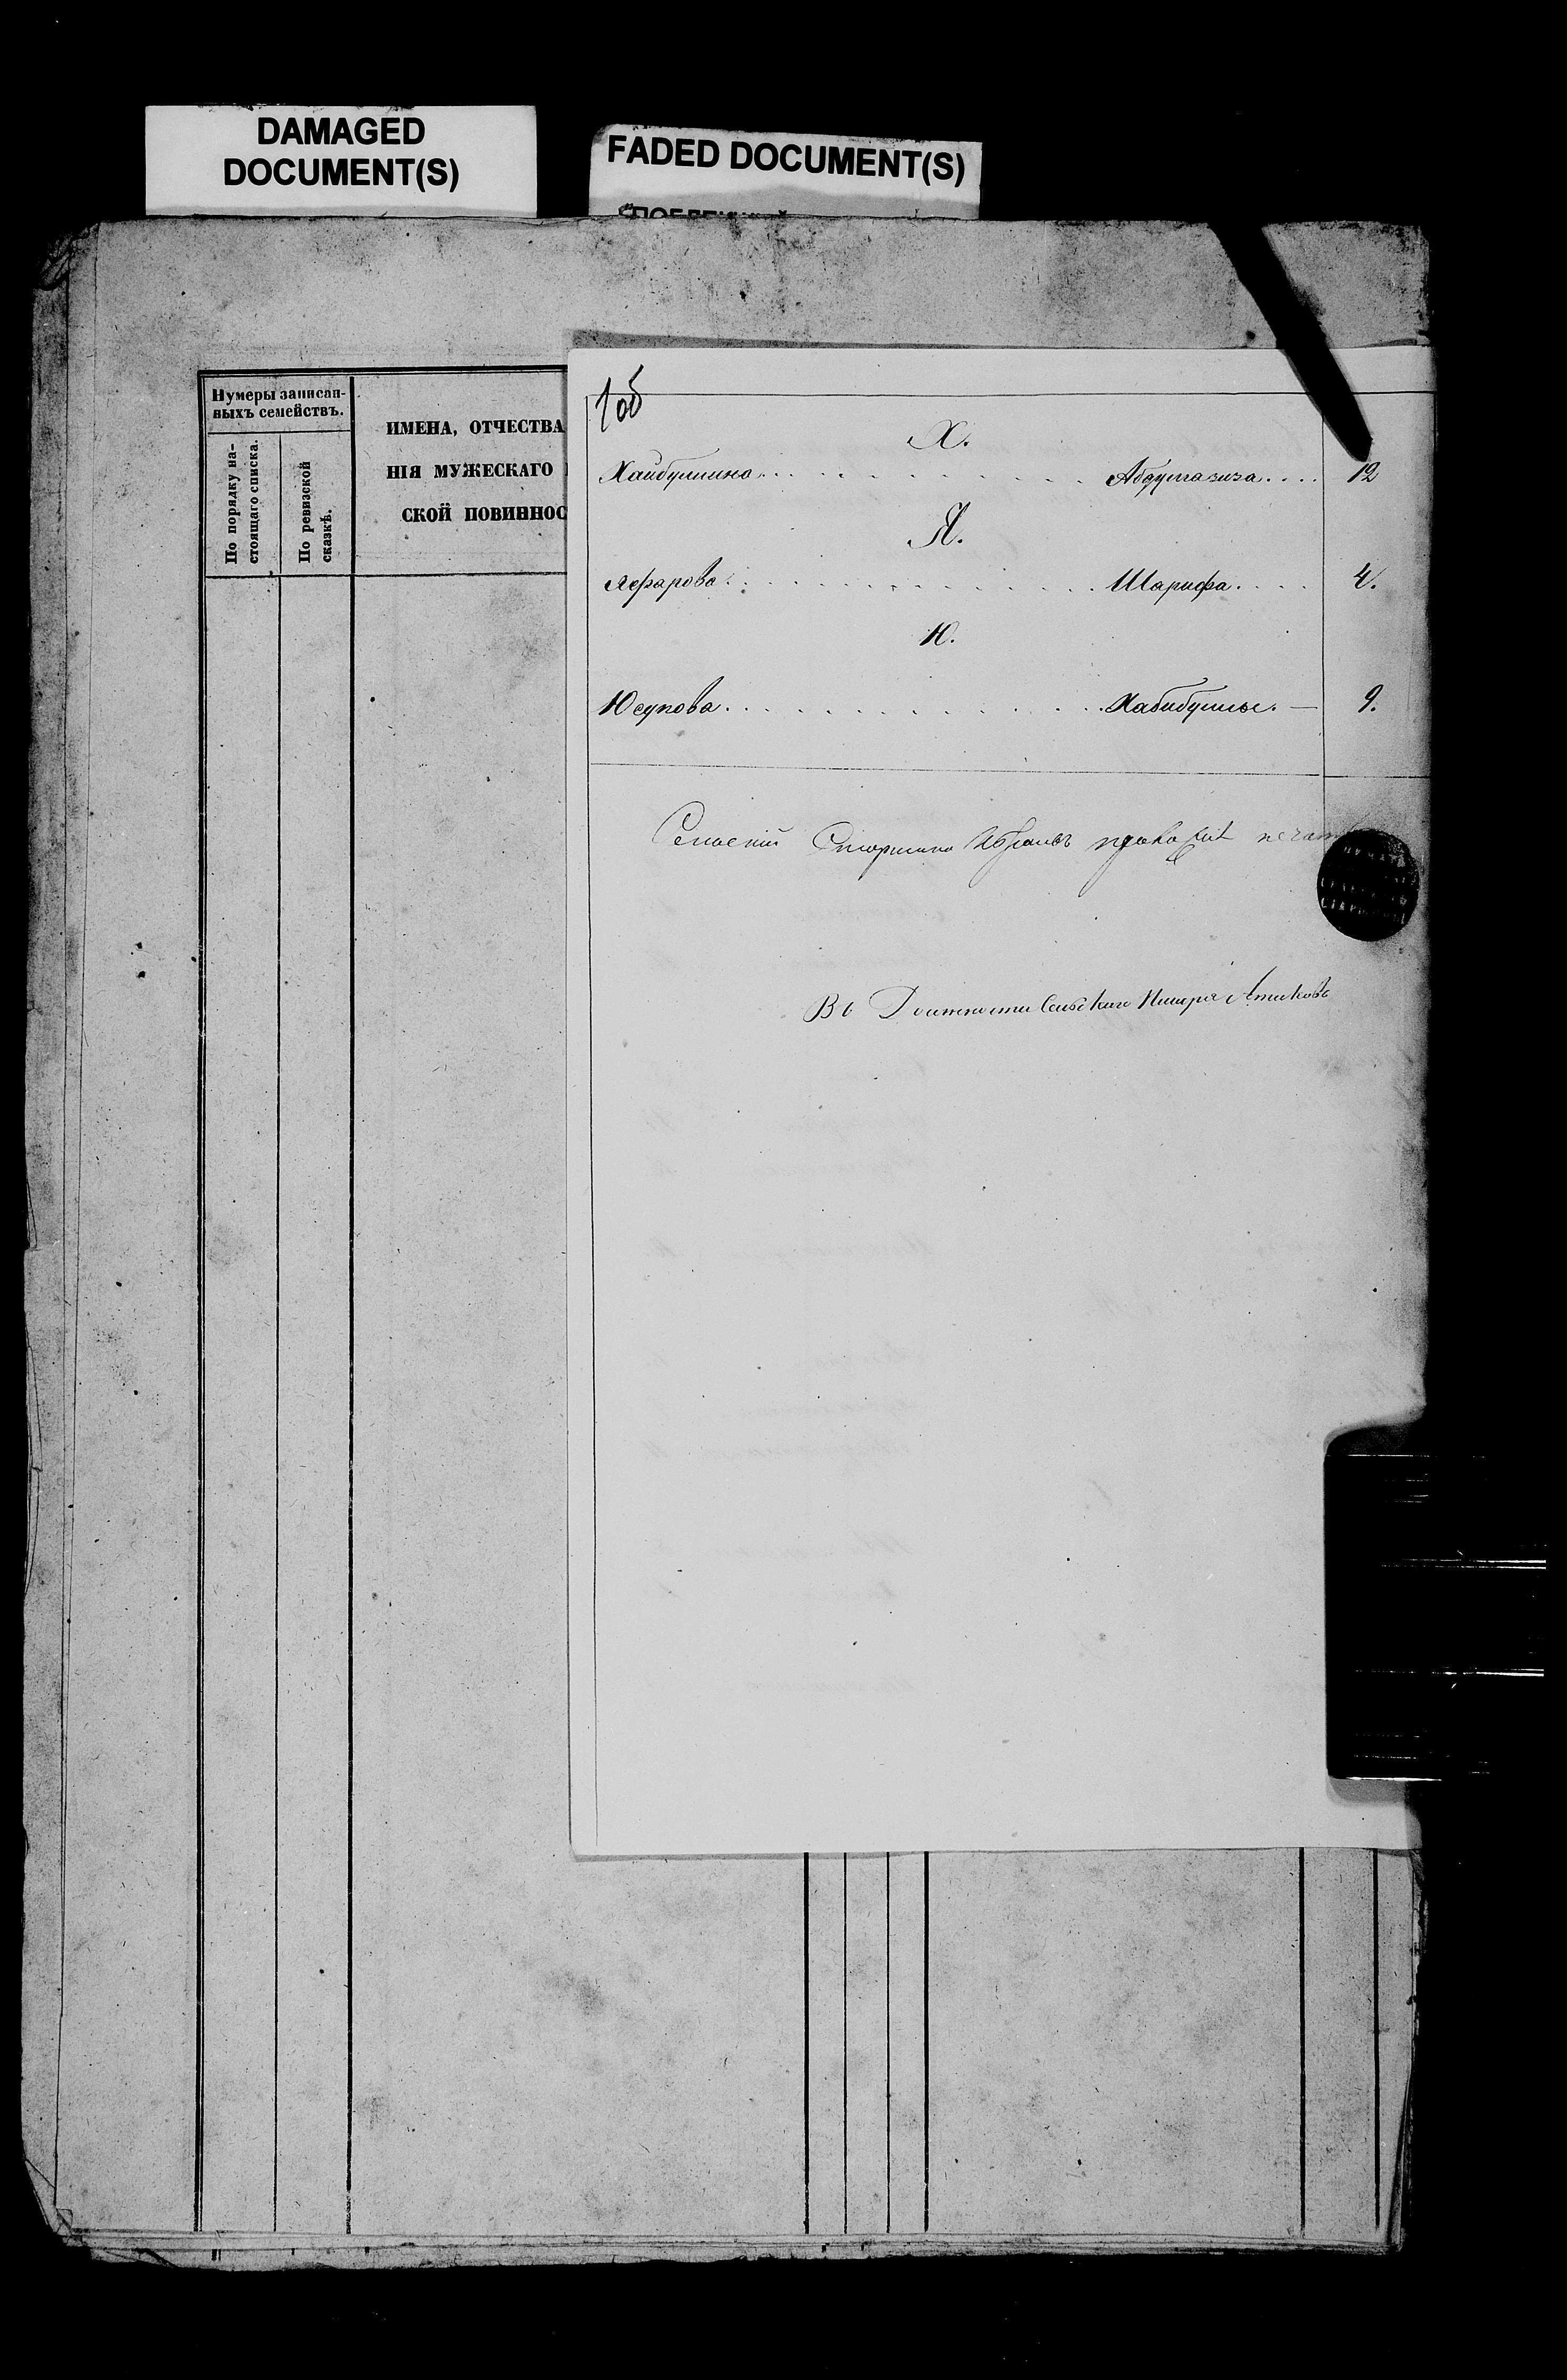 DAMAGED
DOCUMENT(S)
FADED DOCUMENT(S)
Нумеры записан-
ныхъ семействъ.
По порядку на-
стоящаго списка.
По ревизской
сказкѣ.
ИМЕНА, ОТЧЕСТВА
НІЯ МУЖЕСКАГО
СКОЙ ПОВИННОС
Х.
Хайбуллина . . . . . . . . . . . . Абдулгазиза . . . . 12
Я.
Яфарова . . . . . . . . . . . . Шарифа . . . . 4.
Ю.
Юсупова . . . . . . . . . . . . Хабибуллы. — 9.
Сельскій Старшина печать
Въ Должности Сельскаго Писаря Атиковъ